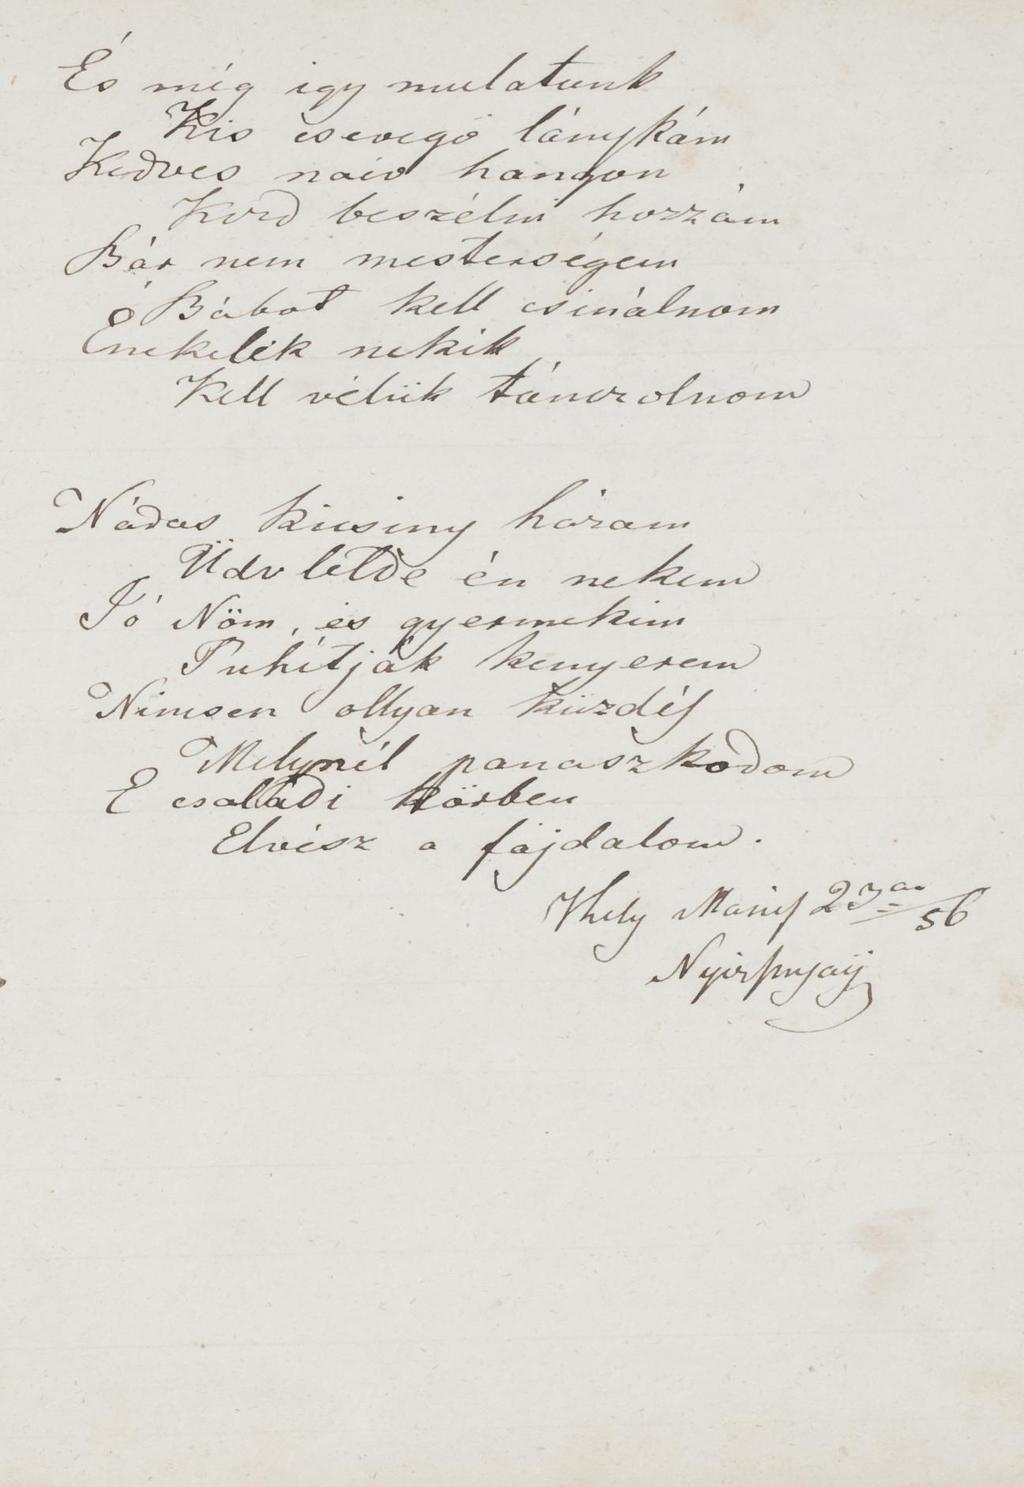 És míg igy mulatunk
Kis csevegö lánykám
Kedves naiv hangon
Kezd beszélni hozzám
Bár nem mesterségem
Bábot kell csinálnom
Énekelék nekik
Kell vélük tánczolnom
Nádas kicsiny házam
Üdv lelde én nekem
Jó Nöm, és gyermekim
Puhítják kenyerem
Nincsen ollyan küzdés
Melynél panaszkodom
E családi körben
Elvész a fájdalom.
Uhely 23 56